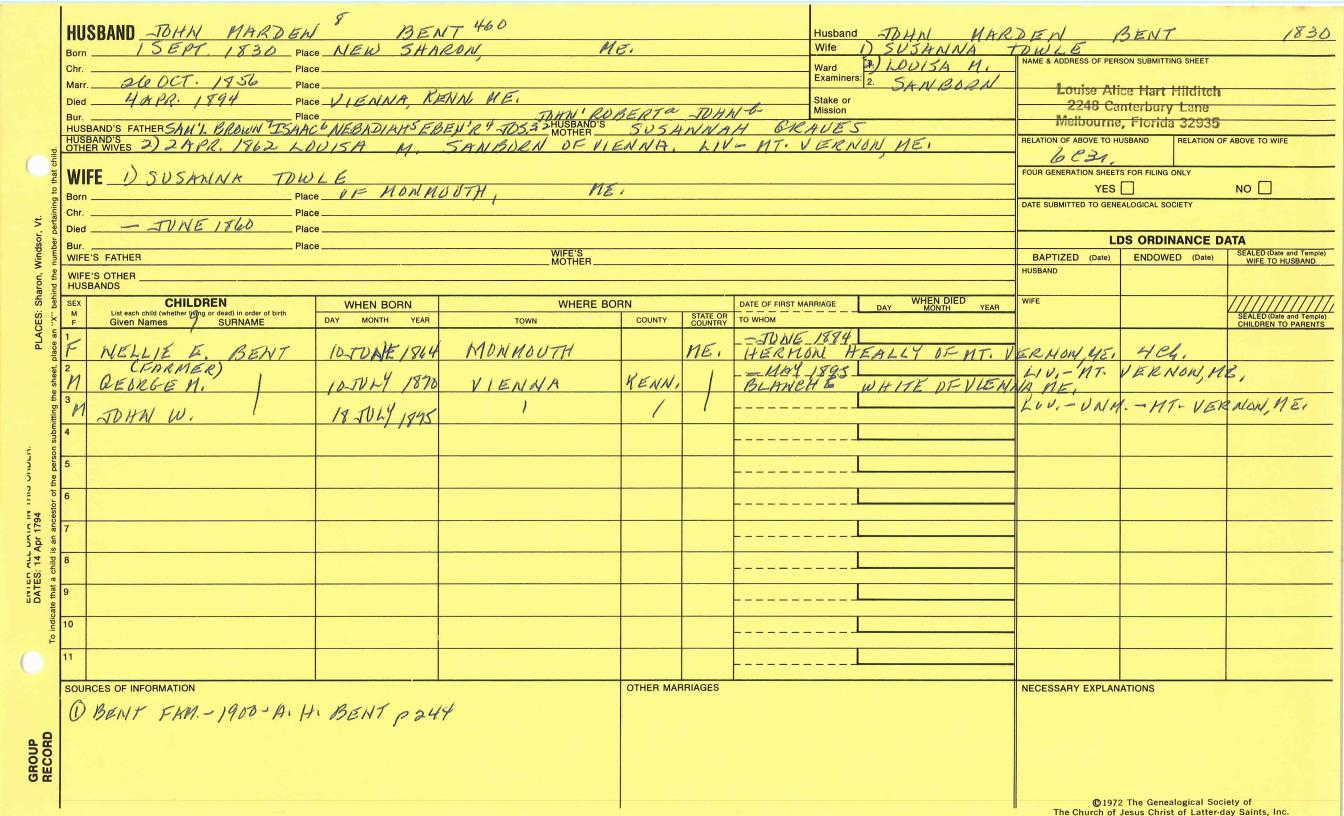 HUSBAND JOHN MARDEN 8 BENT 460
Born 1 SEPT. 1830 Place NEW SHARON, ME.
Chr. Place
Marr. 26 OCT. 1856 Place
Died 4 APR. 1894 Place VIENNA, KENN ME.
Bur. Place JOHN' ROBERT a JOHN b
HUSBAND'S FATHER SAM'L BROWN 7 ISAAC 6 NEBADIAH 5 EBEN'R 4 JOS. 3 2 HUSBAND'S MOTHER SUSANNAH GRAVES
HUSBAND'S OTHER WIVES 2) 2 APR. 1862 LOUISA M. SANBORN OF VIENNA. LIV- MT. VERNON, ME.
WIFE 1) SUSANNA TOWLE
Born Place OF MONMOUTH, ME.
Chr. Place
Died — JUNE 1860 Place
Bur. Place
WIFE'S FATHER WIFE'S MOTHER
WIFE'S OTHER HUSBANDS
Husband JOHN MARDEN BENT 1830
Wife 1) SUSANNA TOWLE
Ward Examiners: 1. 2) LOUISA M.
2. SANBORN
Stake or Mission
NAME & ADDRESS OF PERSON SUBMITTING SHEET
Louise Alice Hart Hilditch
2248 Canterbury Lane
Melbourne, Florida 32935
RELATION OF ABOVE TO HUSBAND RELATION OF ABOVE TO WIFE
6C3r.
FOUR GENERATION SHEETS FOR FILING ONLY
YES NO
DATE SUBMITTED TO GENEALOGICAL SOCIETY
LDS ORDINANCE DATA
BAPTIZED (Date) ENDOWED (Date) SEALED (Date and Temple) WIFE TO HUSBAND
HUSBAND
WIFE
SEALED (Date and Temple) CHILDREN TO PARENTS
SEX M F CHILDREN WHEN BORN WHERE BORN DATE OF FIRST MARRIAGE WHEN DIED
List each child (whether living or dead) in order of birth
Given Names 9 SURNAME DAY MONTH YEAR TOWN COUNTY STATE OR COUNTRY TO WHOM DAY MONTH YEAR
1 — JUNE 1884
F NELLIE E. BENT 10 JUNE 1864 MONMOUTH ME. HERMON HEALLY OF MT. VERNON, ME. 4 Ch.
2 (FARMER) — MAY 1895 LIV.- MT. VERNON, ME.
M GEORGE M. 10 JULY 1870 VIENNA KENN. BLANCH E WHITE OF VIENNA ME.
3 LIV.- UNM. - MT- VERNON, ME.
M JOHN W. 18 JULY 1875
4
5
6
7
8
9
10
11
SOURCES OF INFORMATION OTHER MARRIAGES NECESSARY EXPLANATIONS
① BENT FAM.- 1900 - A. H. BENT p 244
©1972 The Genealogical Society of
The Church of Jesus Christ of Latter-day Saints, Inc.
PLACES: Sharon, Windsor, Vt.
ENTER ALL DATA IN THIS ORDER:
DATES: 14 Apr 1794
To indicate that a child is an ancestor of the person submitting the sheet, place an "X" behind the number pertaining to that child.
GROUP RECORD